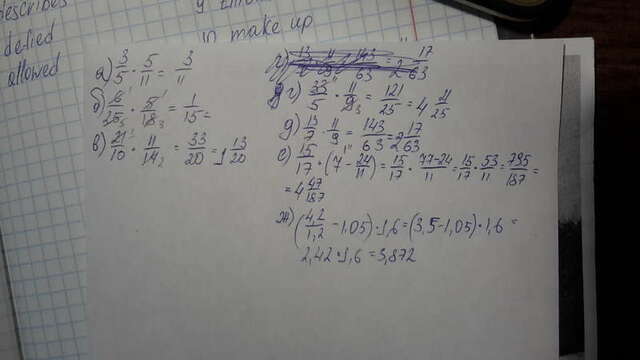 describes
denied
allowed
in make up
а) 3/5 · 5/11 = 3/11
б) 6/25 · 5/18 = 1/15 =
в) 21/10 · 11/14 = 33/20 = 1 13/20
17/63
г) 33/5 · 11/ = 121/25 = 4 11/25
д) 13/7 · 11/9 = 143/63 = 2 17/63
е) 15/17 · (7 - 24/11) = 15/17 · 77-24/11 = 15/17 · 53/11 = 795/187 =
= 4 47/187
ж) (4,2/1,2 - 1,05) · 1,6 = (3,5 - 1,05) · 1,6 =
2,42 · 1,6 = 3,872